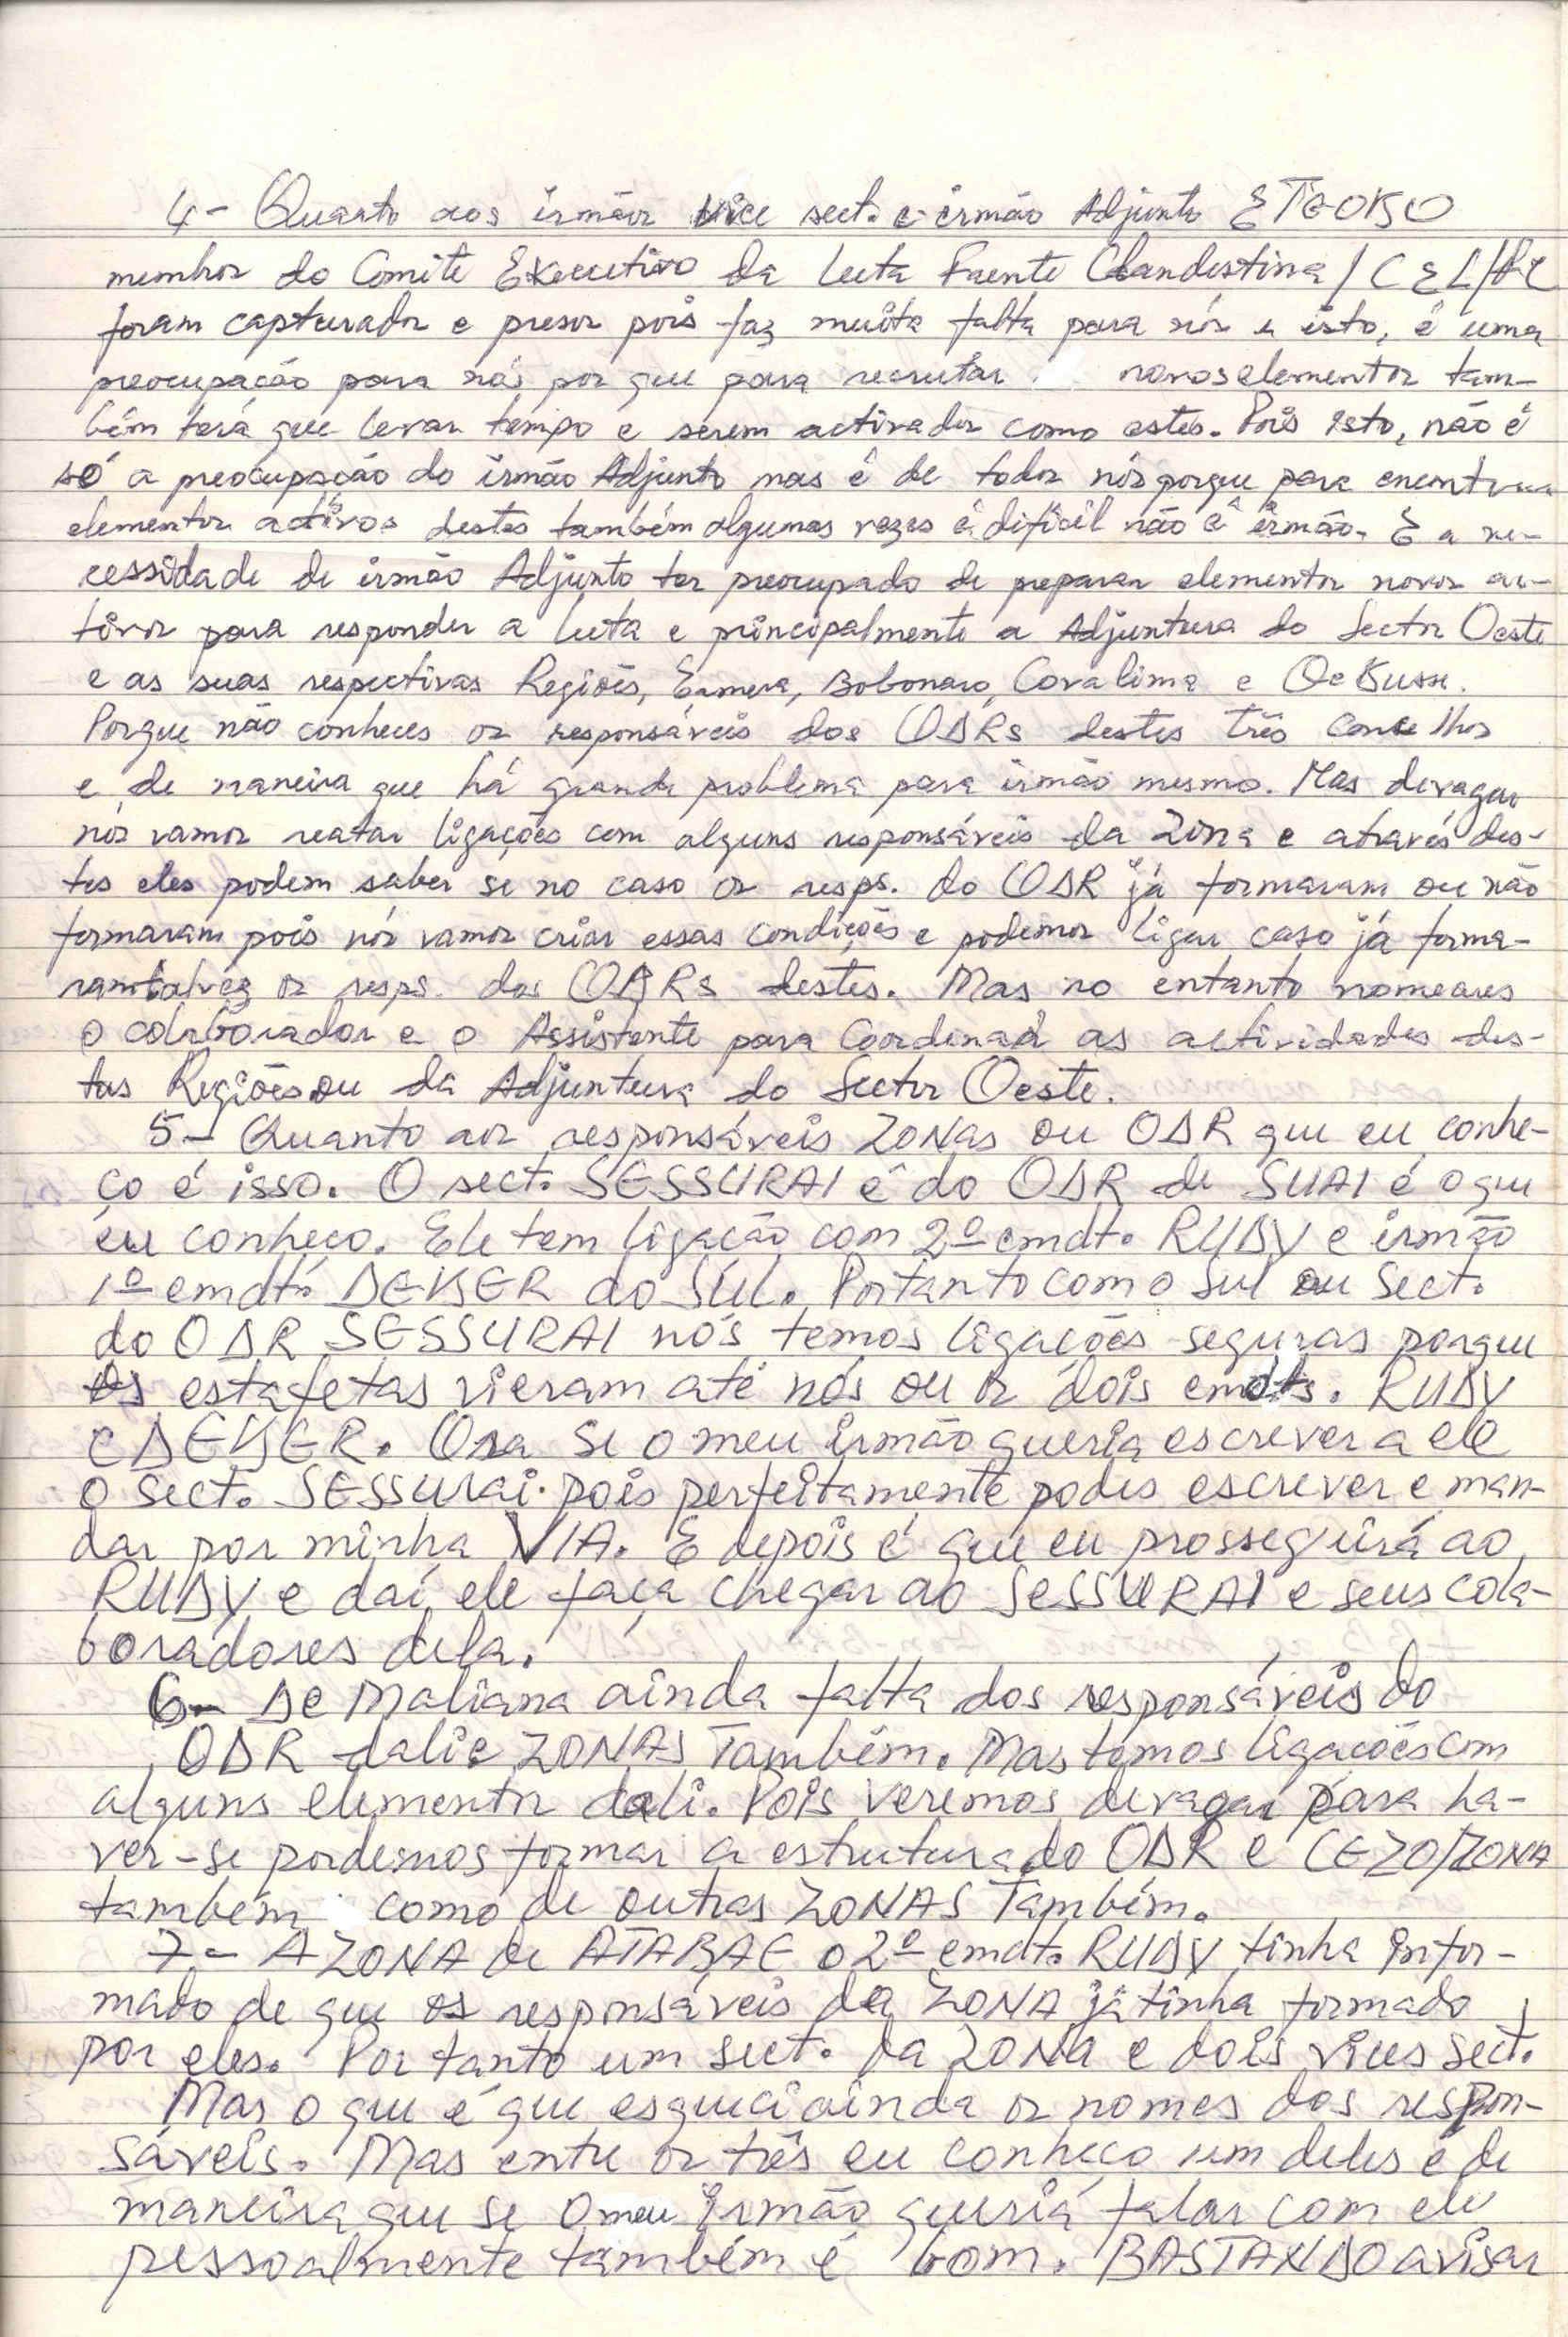 4- Quanto aos irmãos vice sect. e irmão Adjunto
membros do Comité Executivo da Luta Frente Clandestina/CEL/FC
foram capturados e presos pois faz muita falta para nós e isto, é uma
preocupação para nós por que para recrutar novos elementos tam-
bém terá que levar tempo e serem activados como estes. Pois isto, não é
só a preocupação do irmão Adjunto mas é de todos nós porque para encontrar
elementos activos destes também algumas vezes é difícil não é irmão. E a ne-
cessidade de irmão Adjunto ter preocupado de preparar elementos novos ac-
tivos para responder a luta e principalmente a Adjuntura do Sector Oeste
e as suas respectivas Regiões, Ermera, Bobonaro, Covalima e OeKusse.
Porque não conheces os responsáveis dos ODRs destes três concelhos
e de maneira que há grande problema para irmão mesmo. Mas devagar
nós vamos reatar ligações com alguns responsáveis da Zona e através des-
tes eles podem saber se no caso os resps. do ODR já formaram ou não
formaram pois nós vamos criar essas condições e podemos ligar caso já forma-
ram talvez os resps. dos ODRs destes. Mas no entanto nomeares
o colaborador e o Assistente para Coordenar as actividades des-
tas Regiões ou da Adjuntura do Sector Oeste.
5- Quanto aos responsáveis ZONAS ou ODR que eu conhe-
ço é isso. O sect. SESSURAI é do ODR de SUAI é o que
eu conheço. Ele tem ligação com 2º cmdt. RUDY e irmão
1º cmdt. DEKER do SUL. Portanto com o Sul ou Sect.
do ODR SESSURAI nós temos ligações seguras porque
os estafetas vieram até nós ou os dois cmdts. RUDY
e DEKER. Ora se o meu irmão queria escrever a ele
o sect. SESSURAi. pois perfeitamente podes escrever e man-
dar por minha VIA. E depois é que eu prosseguirá ao
RUDY e daí ele faça chegar ao SESSURAI e seus cola-
boradores dela.
6- De Maliana ainda falta dos responsáveis do
ODR dali e ZONAS Também. Mas temos ligações com
alguns elementos dali. Pois veremos devagar para ha-
ver-se podemos formar a estrutura do ODR e CEZO/ZONA
também como de outras ZONAS Também.
7- A ZONA de ATABAE o 2º cmdt. RUDY tinha infor-
mado de que os responsáveis da ZONA já tinha formado
por eles. Portanto um sect. da ZONA e dois vices sect.
Mas o que é que esqueci ainda os nomes dos respon-
sáveis. Mas entre os três eu conheço um deles e de
maneira que se o meu irmão queriá falar com ele
pessoalmente também é bom. BASTANDO avisar